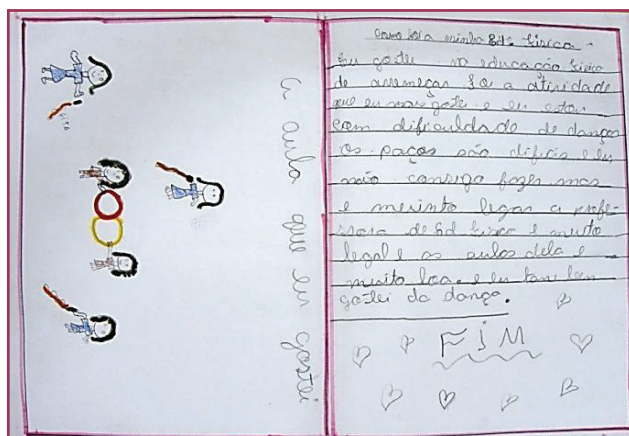 fita
A aula que eu gostei
como foi a minha Ed. fisica
Eu gostei na educação fisica
de arremeças foi a atividade
que eu mas gotei e eu estou
com dificuldade de danças
os paços são dificis e eu
não consigo fazer mas
e me sinto legau a profe-
ssora de Ed fisica e muito
legal e as aulas dela e
muito boa. e eu tambem
gostei da dança.
FiM